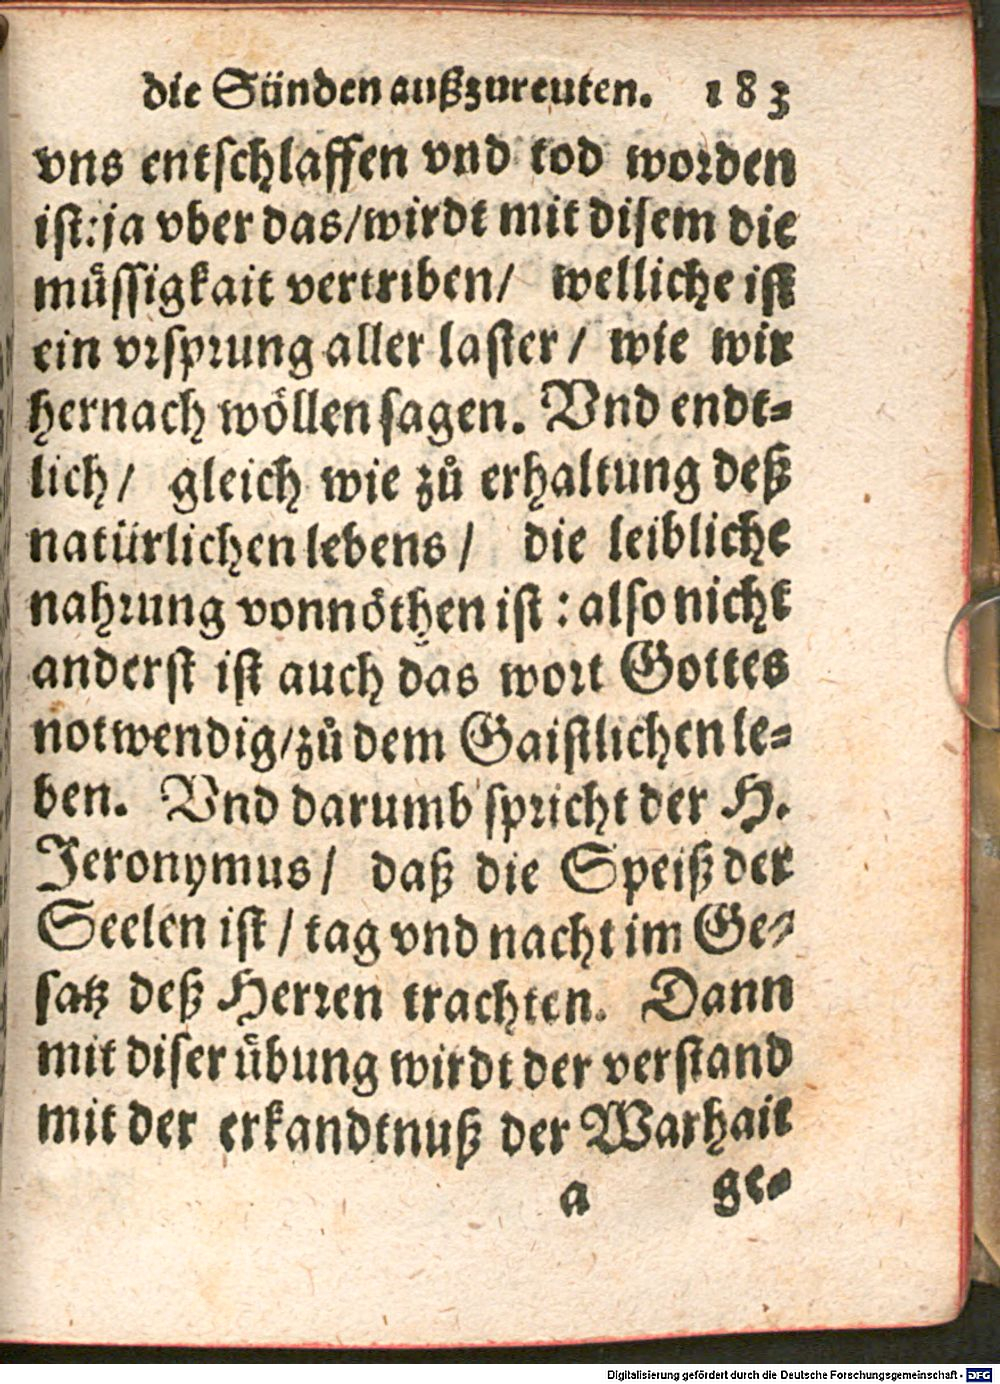 die Sünden außzureuten. 183
vns entschlaffen vnd tod worden
ist: ja vber das/wirdt mit disem die
müssigkait vertriben/ welliche ist
ein vrsprung aller laster/ wie wir
hernach wöllen sagen. Vnd endt-
lich/ gleich wie zů erhaltung deß
natürlichen lebens/ die leibliche
nahrung vonnöthen ist: also nicht
anderst ist auch das wort Gottes
notwendig/zů dem Gaistlichen le-
ben. Vnd darumb spricht der H.
Jeronymus/ daß die Speiß der
Seelen ist/ tag vnd nacht im Ge-
satz deß Herren trachten. Dann
mit diser übung wirdt der verstand
mit der erkandtnuß der Warhait
a ge-
Digitalisierung gefördert durch die Deutsche Forschungsgemeinschaft - DFG